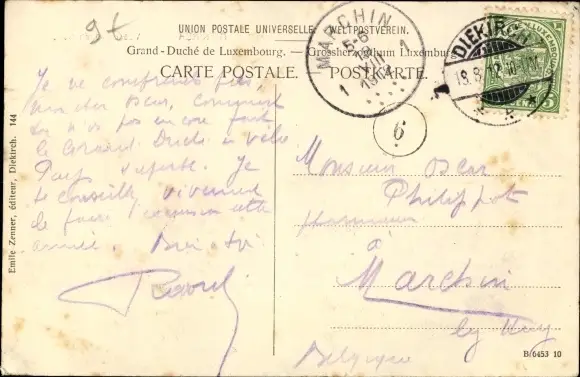 9t
UNION POSTALE UNIVERSELLE. WELTPOSTVEREIN.
Grand-Duché de Luxembourg. — Grossherzogthum Luxemburg
CARTE POSTALE. — POSTKARTE.
MARCHIN
5-6
VIII
1 1
DIEKIRCH
18.8.12.10-11
5
6
Je ne comprends pas,
mon cher Oscar, comment
tu n'as pas encore fait
le Grand Duché à vélo
Pays superbe. Je
te conseille vivement
de faire cette
année. Bien à toi
Raoul
Monsieur Oscar
Philippot
à
Marchin
by Huy
Belgique
Emile Zenner, éditeur, Diekirch. 144
B/6453 10